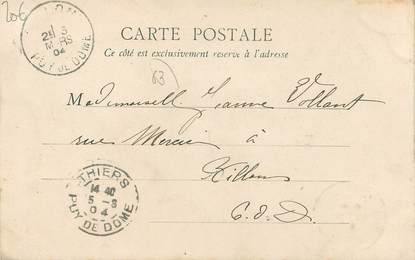 20€
CARTE POSTALE
Ce côté est exclusivement réservé à l'adresse
63
Mademoiselle Jeanne Vollant
rue Mercier à
P. d. D.
25 3
MARS
04
PUY DE DOME
THIERS
14 40
5 -3
04
PUY DE DOME